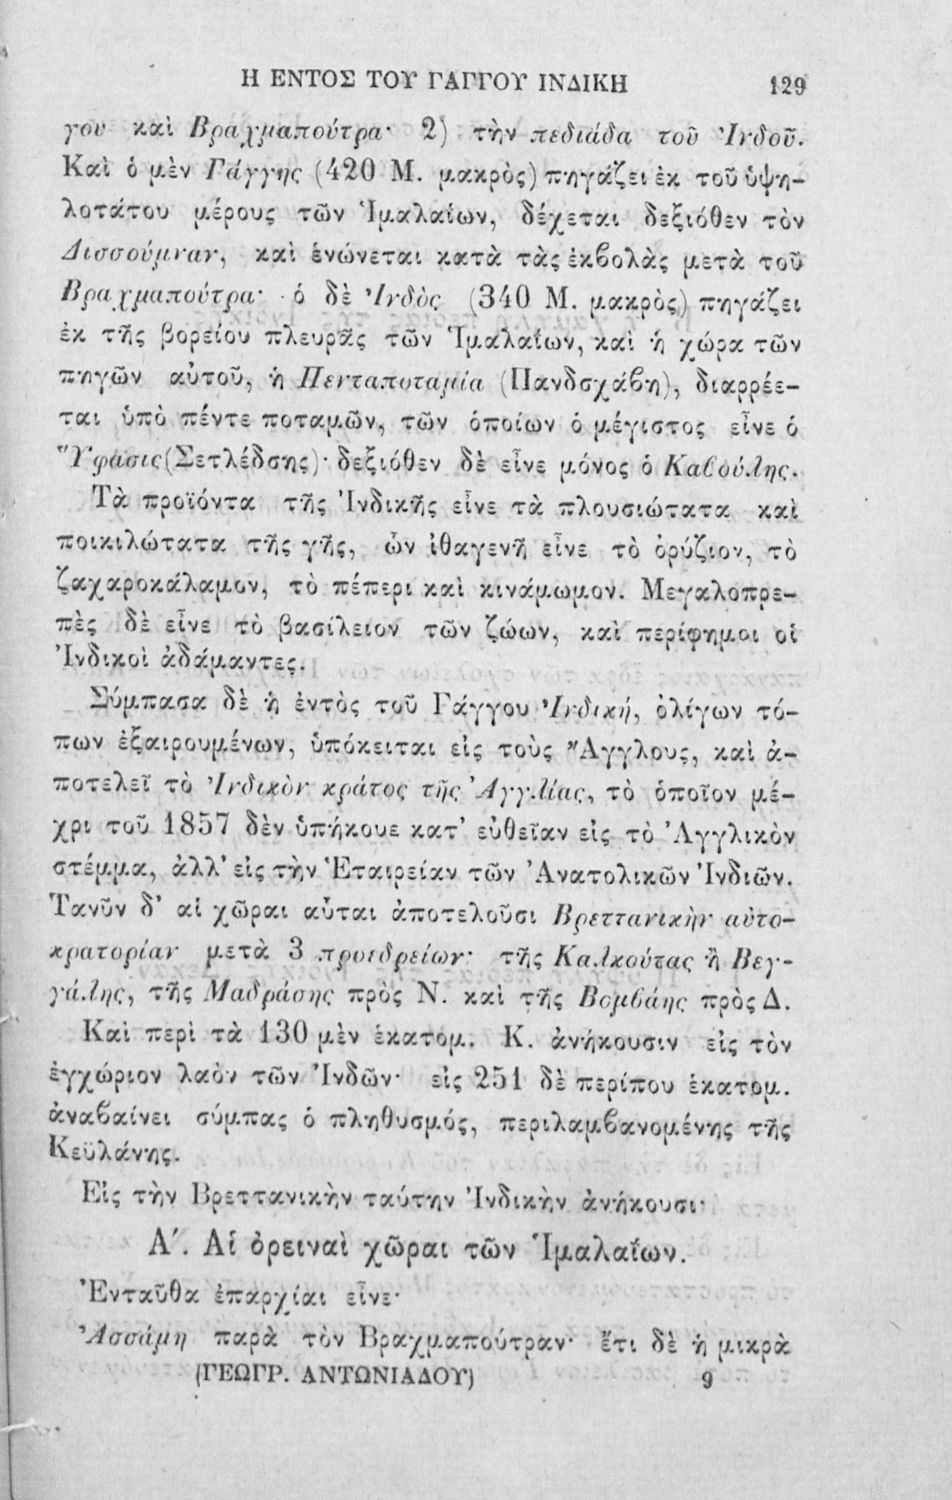 Η ΕΝΤΟΣ ΤΟΥ ΓΑΓΓΟΥ ΙΝΔΙΚΗ 129
γου καὶ Βραχμαπούτρα· 2) τὴν πεδιάδα τοῦ Ἰνδοῦ.
Καὶ ὁ μὲν Γάγγης (420 Μ. μακρὸς) πηγάζει ἐκ τοῦ ὑψη-
λοτάτου μέρους τῶν Ἱμαλαΐων, δέχεται δεξιόθεν τὸν
Δισσούμναν, καὶ ἑνώνεται κατὰ τὰς ἐκβολὰς μετὰ τοῦ
Βραχμαπούτρα· ὁ δὲ Ἰνδὸς (340 Μ. μακρὸς) πηγάζει
ἐκ τῆς βορείου πλευρᾶς τῶν Ἱμαλαΐων, καὶ ἡ χώρα τῶν
πηγῶν αὐτοῦ, ἡ Πενταποταμία (Πανδσχάβη), διαρρέε-
ται ὑπὸ πέντε ποταμῶν, τῶν ὁποίων ὁ μέγιστος εἶνε ὁ
Ὕφασις (Σετλέδσης)· δεξιόθεν δὲ εἶνε μόνος ὁ Καβούλης.
Τὰ προϊόντα τῆς Ἰνδικῆς εἶνε τὰ πλουσιώτατα καὶ
ποικιλώτατα τῆς γῆς, ὧν ἰθαγενῆ εἶνε τὸ ὀρύζιον, τὸ
ζαχαροκάλαμον, τὸ πέπερι καὶ κινάμωμον. Μεγαλοπρε-
πὲς δὲ εἶνε τὸ βασίλειον τῶν ζώων, καὶ περίφημοι οἱ
Ἰνδικοὶ ἀδάμαντες.
Σύμπασα δὲ ἡ ἐντὸς τοῦ Γάγγου Ἰνδική, ὀλίγων τό-
πων ἐξαιρουμένων, ὑπόκειται εἰς τοὺς Ἄγγλους, καὶ ἀ-
ποτελεῖ τὸ Ἰνδικὸν κράτος τῆς Ἀγγλίας, τὸ ὁποῖον μέ-
χρι τοῦ 1857 δὲν ὑπήκουε κατ' εὐθεῖαν εἰς τὸ Ἀγγλικὸν
στέμμα, ἀλλ' εἰς τὴν Ἑταιρείαν τῶν Ἀνατολικῶν Ἰνδιῶν.
Τανῦν δ' αἱ χῶραι αὗται ἀποτελοῦσι Βρεττανικὴν αὐτο-
κρατορίαν μετὰ 3 προεδρείων· τῆς Καλκούτας ἢ Βεγ-
γάλης, τῆς Μαδράσης πρὸς Ν. καὶ τῆς Βομβάης πρὸς Δ.
Καὶ περὶ τὰ 130 μὲν ἑκατομ. Κ. ἀνήκουσιν εἰς τὸν
ἐγχώριον λαὸν τῶν Ἰνδῶν· εἰς 251 δὲ περίπου ἑκατομ.
ἀναβαίνει σύμπας ὁ πληθυσμός, περιλαμβανομένης τῆς
Κεϋλάνης.
Εἰς τὴν Βρεττανικὴν ταύτην Ἰνδικὴν ἀνήκουσι·
Α΄. Αἱ ὀρειναὶ χῶραι τῶν Ἱμαλαΐων.
Ἐνταῦθα ἐπαρχίαι εἶνε·
Ἀσσάμη παρὰ τὸν Βραχμαπούτραν· ἔτι δὲ ἡ μικρὰ
(ΓΕΩΓΡ. ΑΝΤΩΝΙΑΔΟΥ) 9